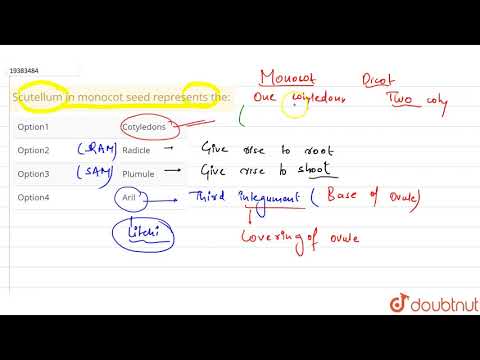 19383484
Monocot Dicot
Scutellum in monocot seed represents the:
One cotyledons Two coty
Option1 Cotyledons (
Option2 (RAM) Radicle → Give rise to root
Option3 (SAM) Plumule → Give rise to shoot
Option4 Aril → Third integument ( Base of ovule)
Litchi
Covering of ovule
doubtnut